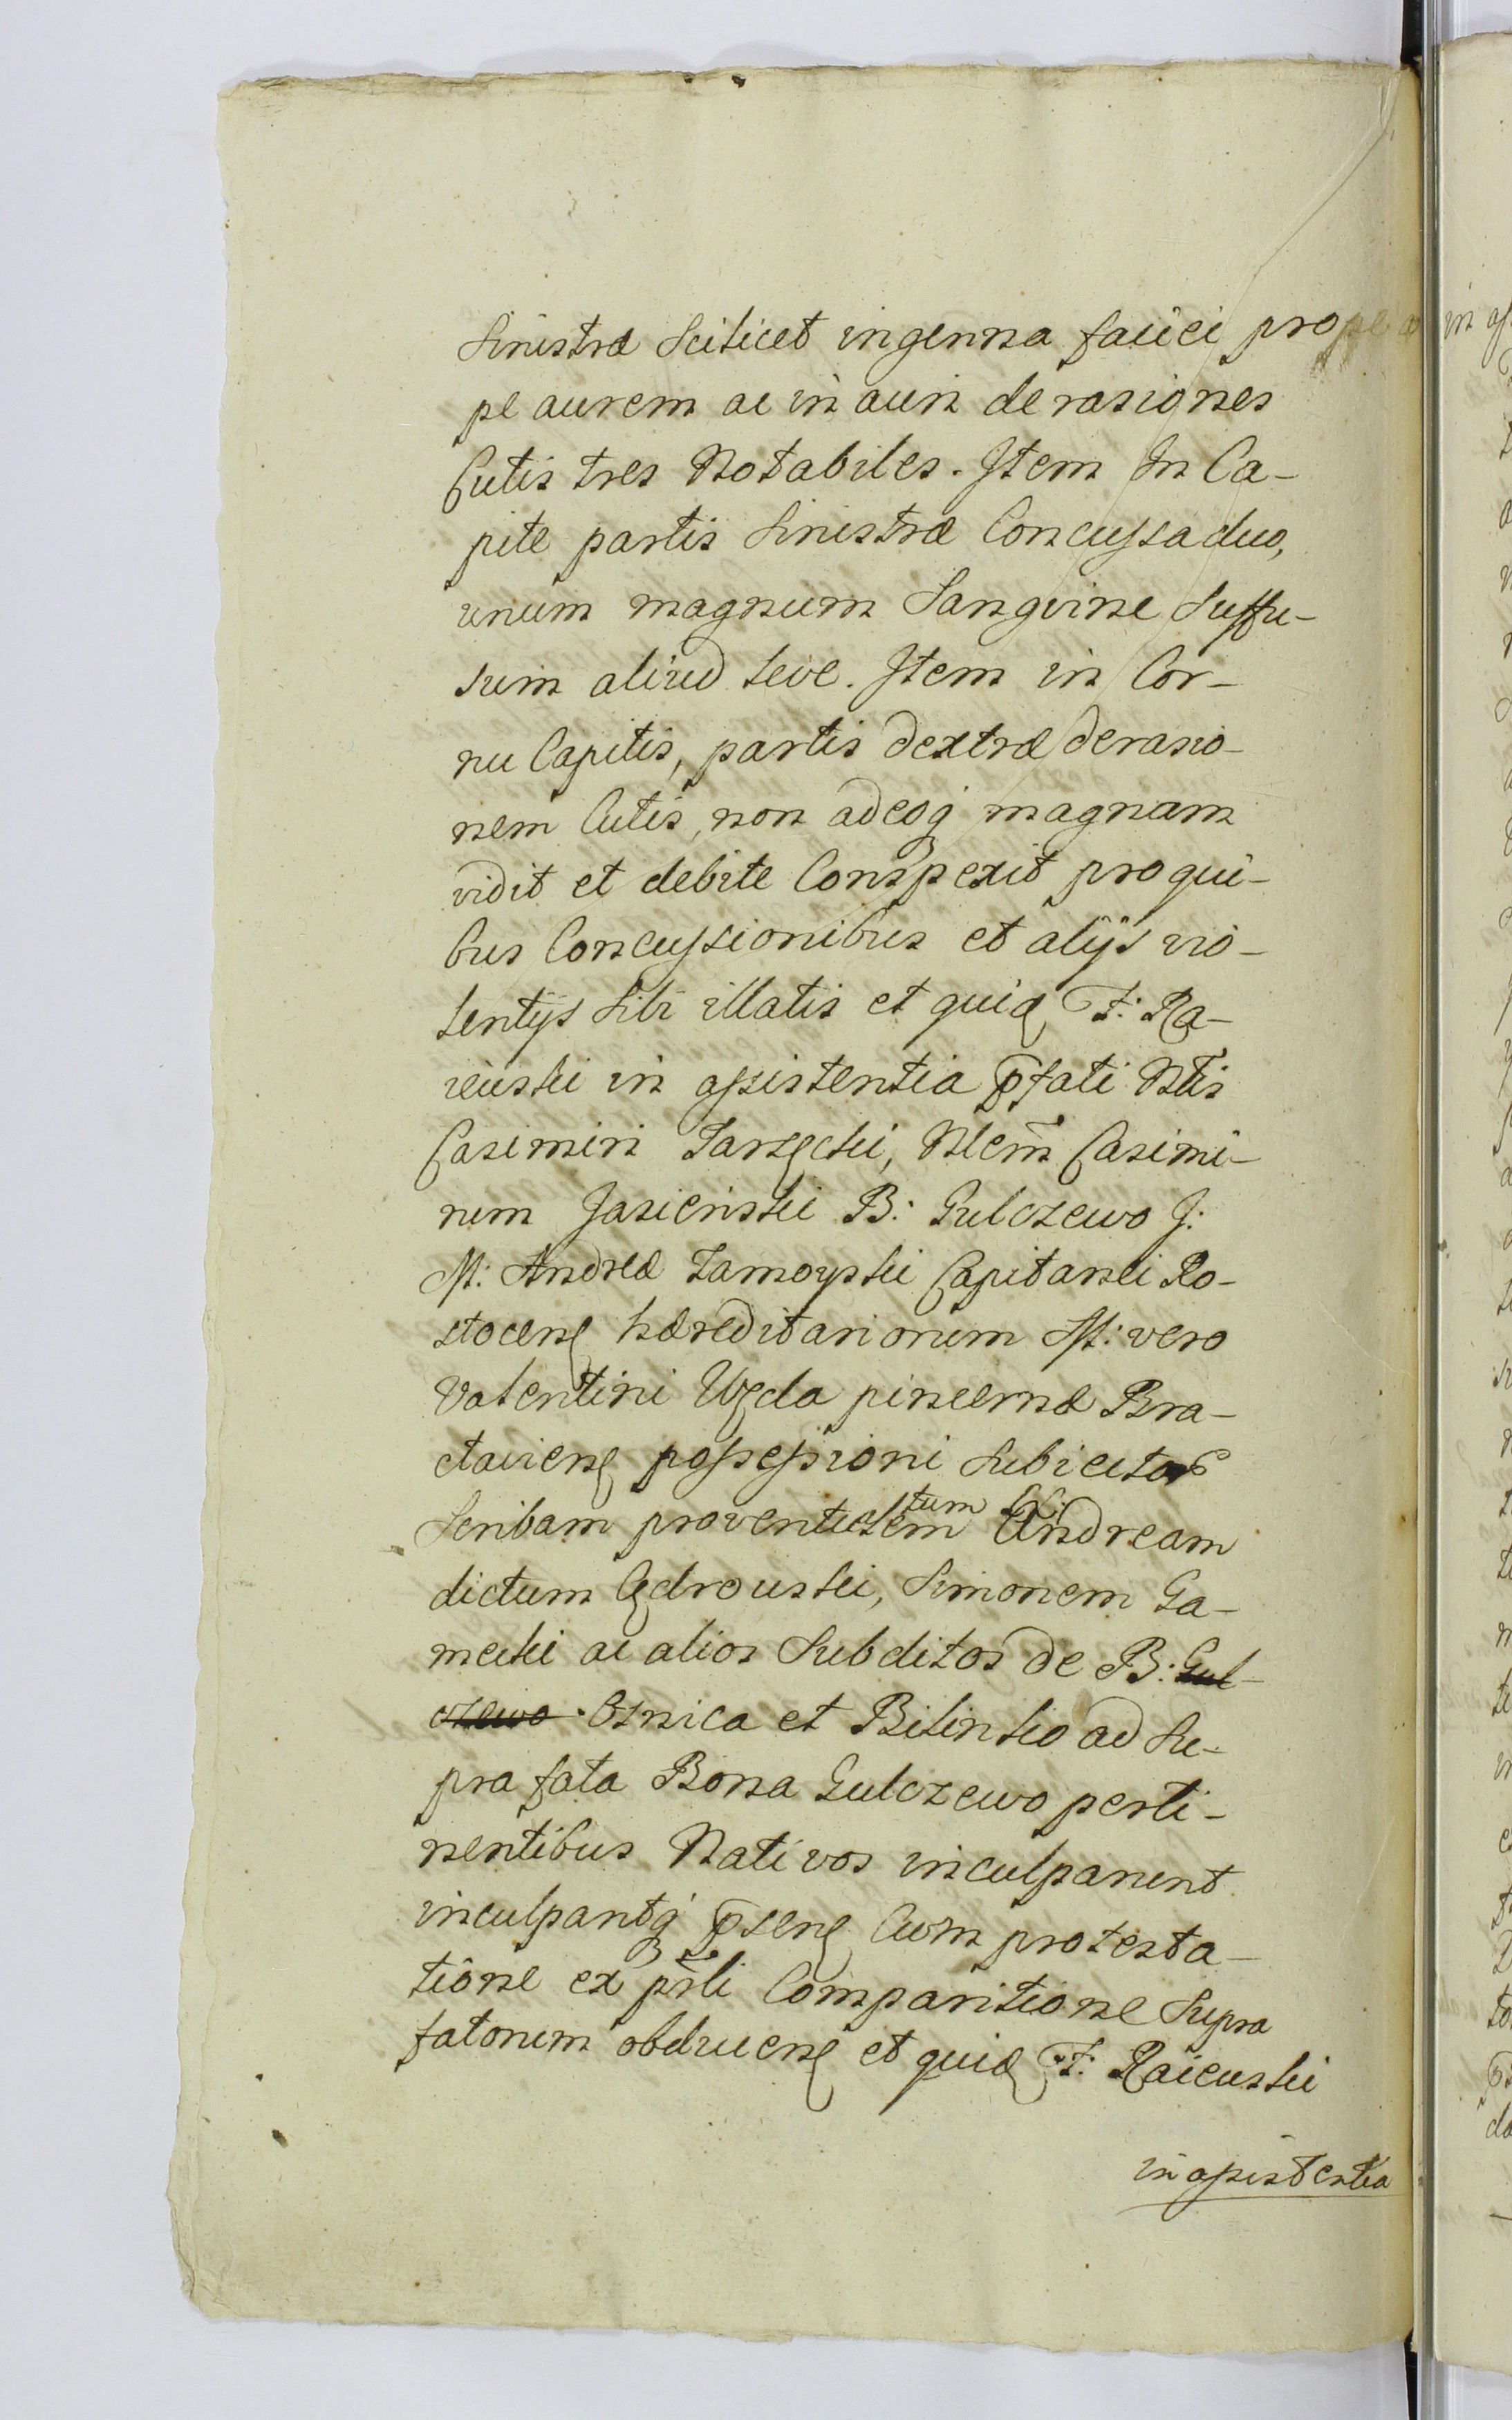 Sinistræ Scilicet in genna fauci prope
pe aurem ac in auri derasiones
Cutis tres Notabiles. Item In Ca-
pite partis Sinistræ Concussa duo,
unum magnum Sangvine Suffu-
sum aliud leve. Item in Cor-
nu Capitis, partis dextræ derasio-
nem Cutis, non adeoq magnam
vidit et debite Conspexit pro qui-
bus Concussionibus et alijs vio-
lentijs Sibi illatis et quid F: Ra-
ieuski in assistentia p̄fati Nłis
Casimiri Zarzecki, Nłem̄ Casimi-
rum Jasieński B: Gulczewo J:
M: Andreæ Zamoyski Capitanei Ro-
stocen hæreditariorum M: vero
Valentini Uzda pincernæ Bra-
claviens possessioni Subiecto
Scribam proventualem tum
Andream
dictum Cedrouski, Simonem Ga-
mecki ac alios Subditos de B: Gul-
czewo Osnica et Bilinsko ad Su-
pra fata Bona Gulczewo perti-
nentibus Nativos inculparunt
inculpantq p̄sens Cum protesta-
tione ex pr̄li Comparitione Supra
fatorum obducens et quid F: Raieuski
in assistentia